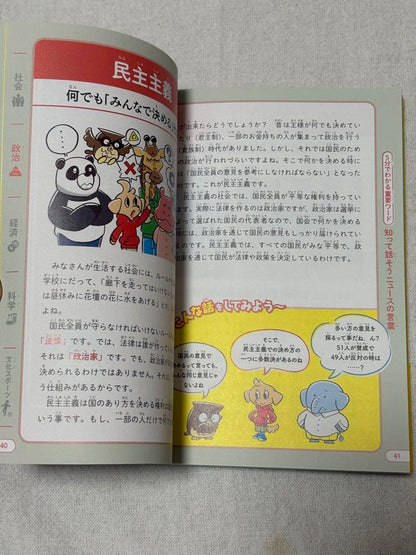 社会
政治
経済
科学
文化スポーツ
民主主義
何でも「みんなで決める」
・・・
みなさんが生活する社会には、ルール
学校にだって、「廊下を走ってはいけない
は昼休みに花壇の花に水をあげる」とな
国民全員が守らなければいけないルール
「法律」です。では、法律は誰が作って
それは「政治家」です。でも、政治家が
決められるわけではありません。それに
う仕組みがあるからです。
民主主義は国のあり方を決める権利は
いう事です。もし、一部の人だけで何で
40
が出来たらどうでしょうか？　昔は王様が何でも決めてい
たり（君主制）、一部のお金持ちの人が集まって政治を行う
（貴族制）時代がありました。しかし、それでは国民のため
の政治が行われづらいですよね。そこで何かを決める時に
「国民全員の意見を参考にしなければならない」となった
のです。これが民主主義です。
民主主義の社会では、国民全員が平等な権利を持っていま
す。実際に法律を作るのは政治家ですが、政治家は選挙に
よって選ばれた国民の代表者なので、国会で何かを決める
時は、政治家を通じて国民の意見もしっかり届けられてい
るのです。民主主義では、すべての国民がみな平等で、政
治家を通じて国民が法律や政策を決定しているわけです。
こんな話をしてみよう〜
国民の意見で
決められるって言っても、
みんな同じ意見じゃ
ないよね
そこで、
民主主義での決め方の
一つに多数決があるのね
多い方の意見を
採るって事だね。ん？
51人が賛成で
49人が反対の時は
……？
5分でわかる重要ワード
知って話そうニュースの言葉
41